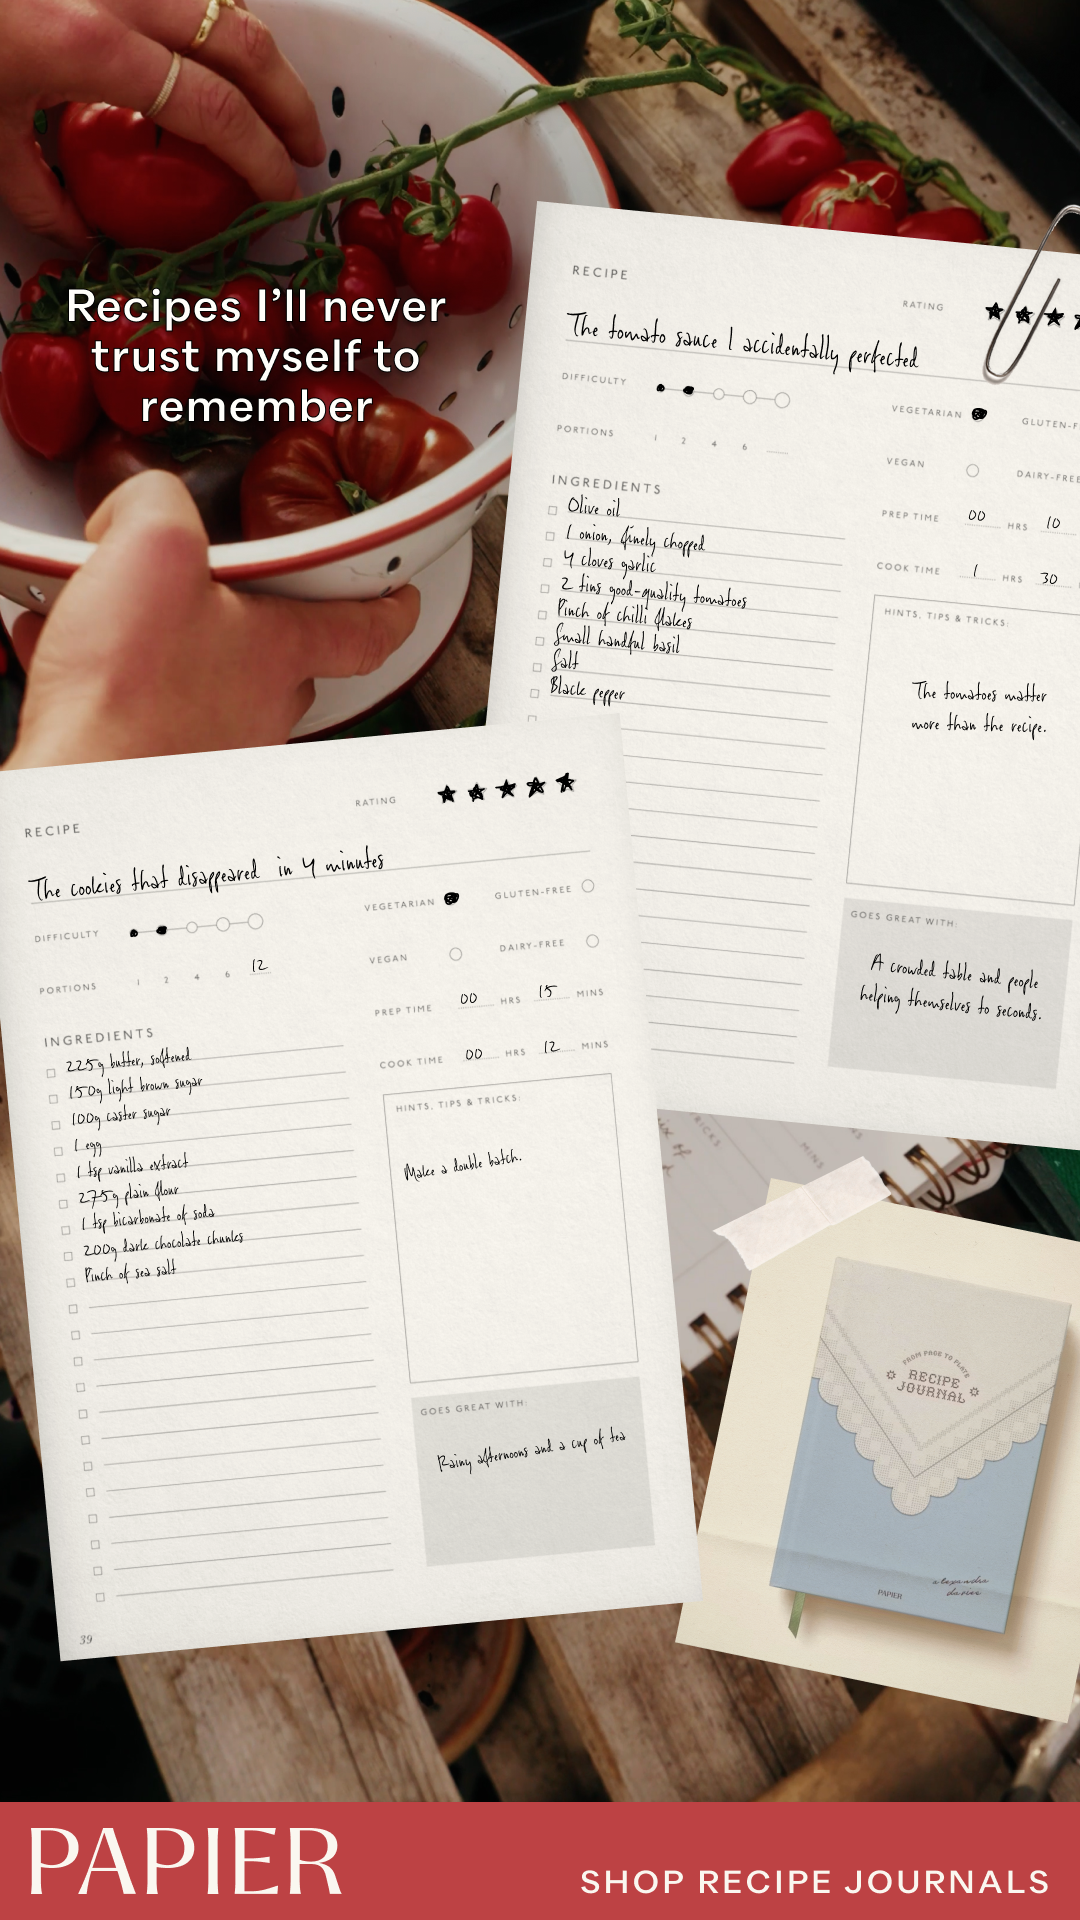 Recipes I'll never
trust myself to
remember
RECIPE
RATING
The tomato sauce I accidentally perfected
DIFFICULTY
VEGETARIAN
GLUTEN-F
PORTIONS 1 2 4 6
VEGAN
DAIRY-FREE
INGREDIENTS
Olive oil
1 onion, finely chopped
4 cloves garlic
2 tins good-quality tomatoes
Pinch of chilli flakes
Small handful basil
Salt
Black pepper
PREP TIME 00 HRS 10
COOK TIME 1 HRS 30
HINTS, TIPS & TRICKS:
The tomatoes matter
more than the recipe.
GOES GREAT WITH:
A crowded table and people
helping themselves to seconds.
RECIPE
RATING
The cookies that disappeared in 4 minutes
DIFFICULTY
VEGETARIAN
GLUTEN-FREE
PORTIONS 1 2 4 6 12
VEGAN
DAIRY-FREE
PREP TIME 00 HRS 15 MINS
COOK TIME 00 HRS 12 MINS
INGREDIENTS
225g butter, softened
150g light brown sugar
100g caster sugar
1 egg
1 tsp vanilla extract
275g plain flour
1 tsp bicarbonate of soda
200g dark chocolate chunks
Pinch of sea salt
HINTS, TIPS & TRICKS:
Make a double batch.
GOES GREAT WITH:
Rainy afternoons and a cup of tea
39
MINS
FROM PAGE TO PLATE
RECIPE
JOURNAL
PAPIER
alexandra
davies
PAPIER
SHOP RECIPE JOURNALS